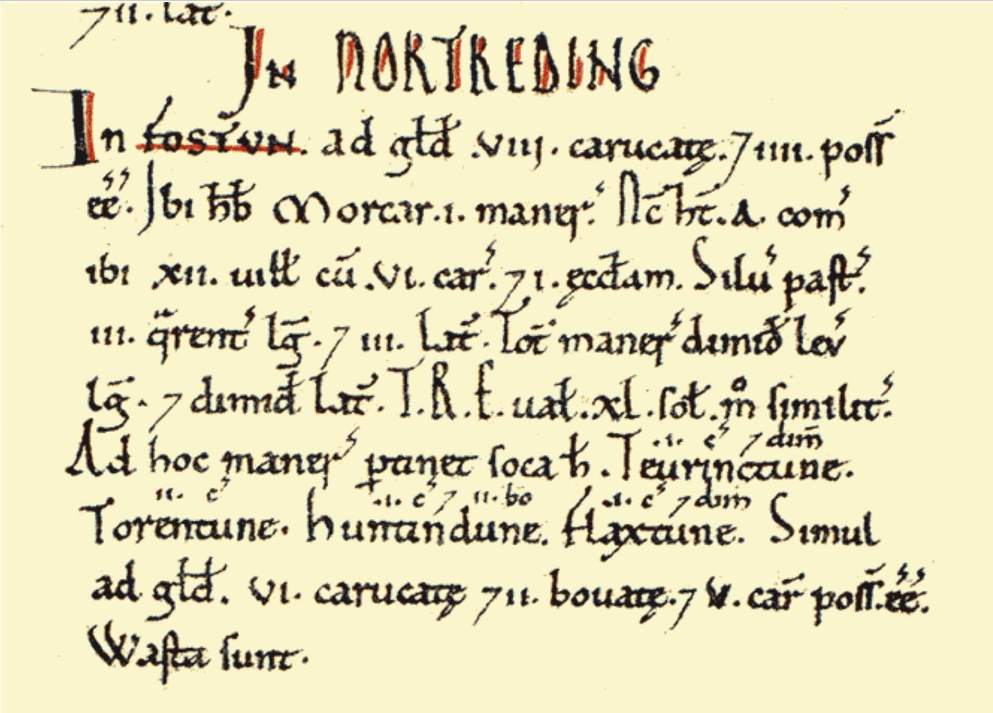 ⁊ii. lat̃.
In NORTREDING
In FOSTVN. ad gld̃ .viij. carucatę. ⁊ iiii. poss̃
ee̅. Ibi hb̃ Morcar .i. maner̃. Nc̃ ht̃ .A. com̃
ibi xii. uill̃ cũ .vi. car̃. ⁊ i. ęccl̃am. Silũ past̃.
iii. q̃rent̃ lg̃. ⁊ iii. lat̃. Tot̃ maner̃ dimid̃ leṽ
lg̃. ⁊ dimid̃ lat̃. T.R.E. ual̃ .xl. sol̃. m̊ similit̃.
Ad hoc maner̃ ꝑtinet soca h̃. Teurinctune.
.i. c̃ ⁊ dim̃
Torentune. huntindune. Haxtune. Simul
ii. c̃ .ii. c̃ ⁊ ii. bo .i. c̃ ⁊ dim̃
ad gld̃. vi. carucatę ⁊ ii. bouatę. ⁊ v. car̃ poss̃. ee̅.
Wasta sunt.